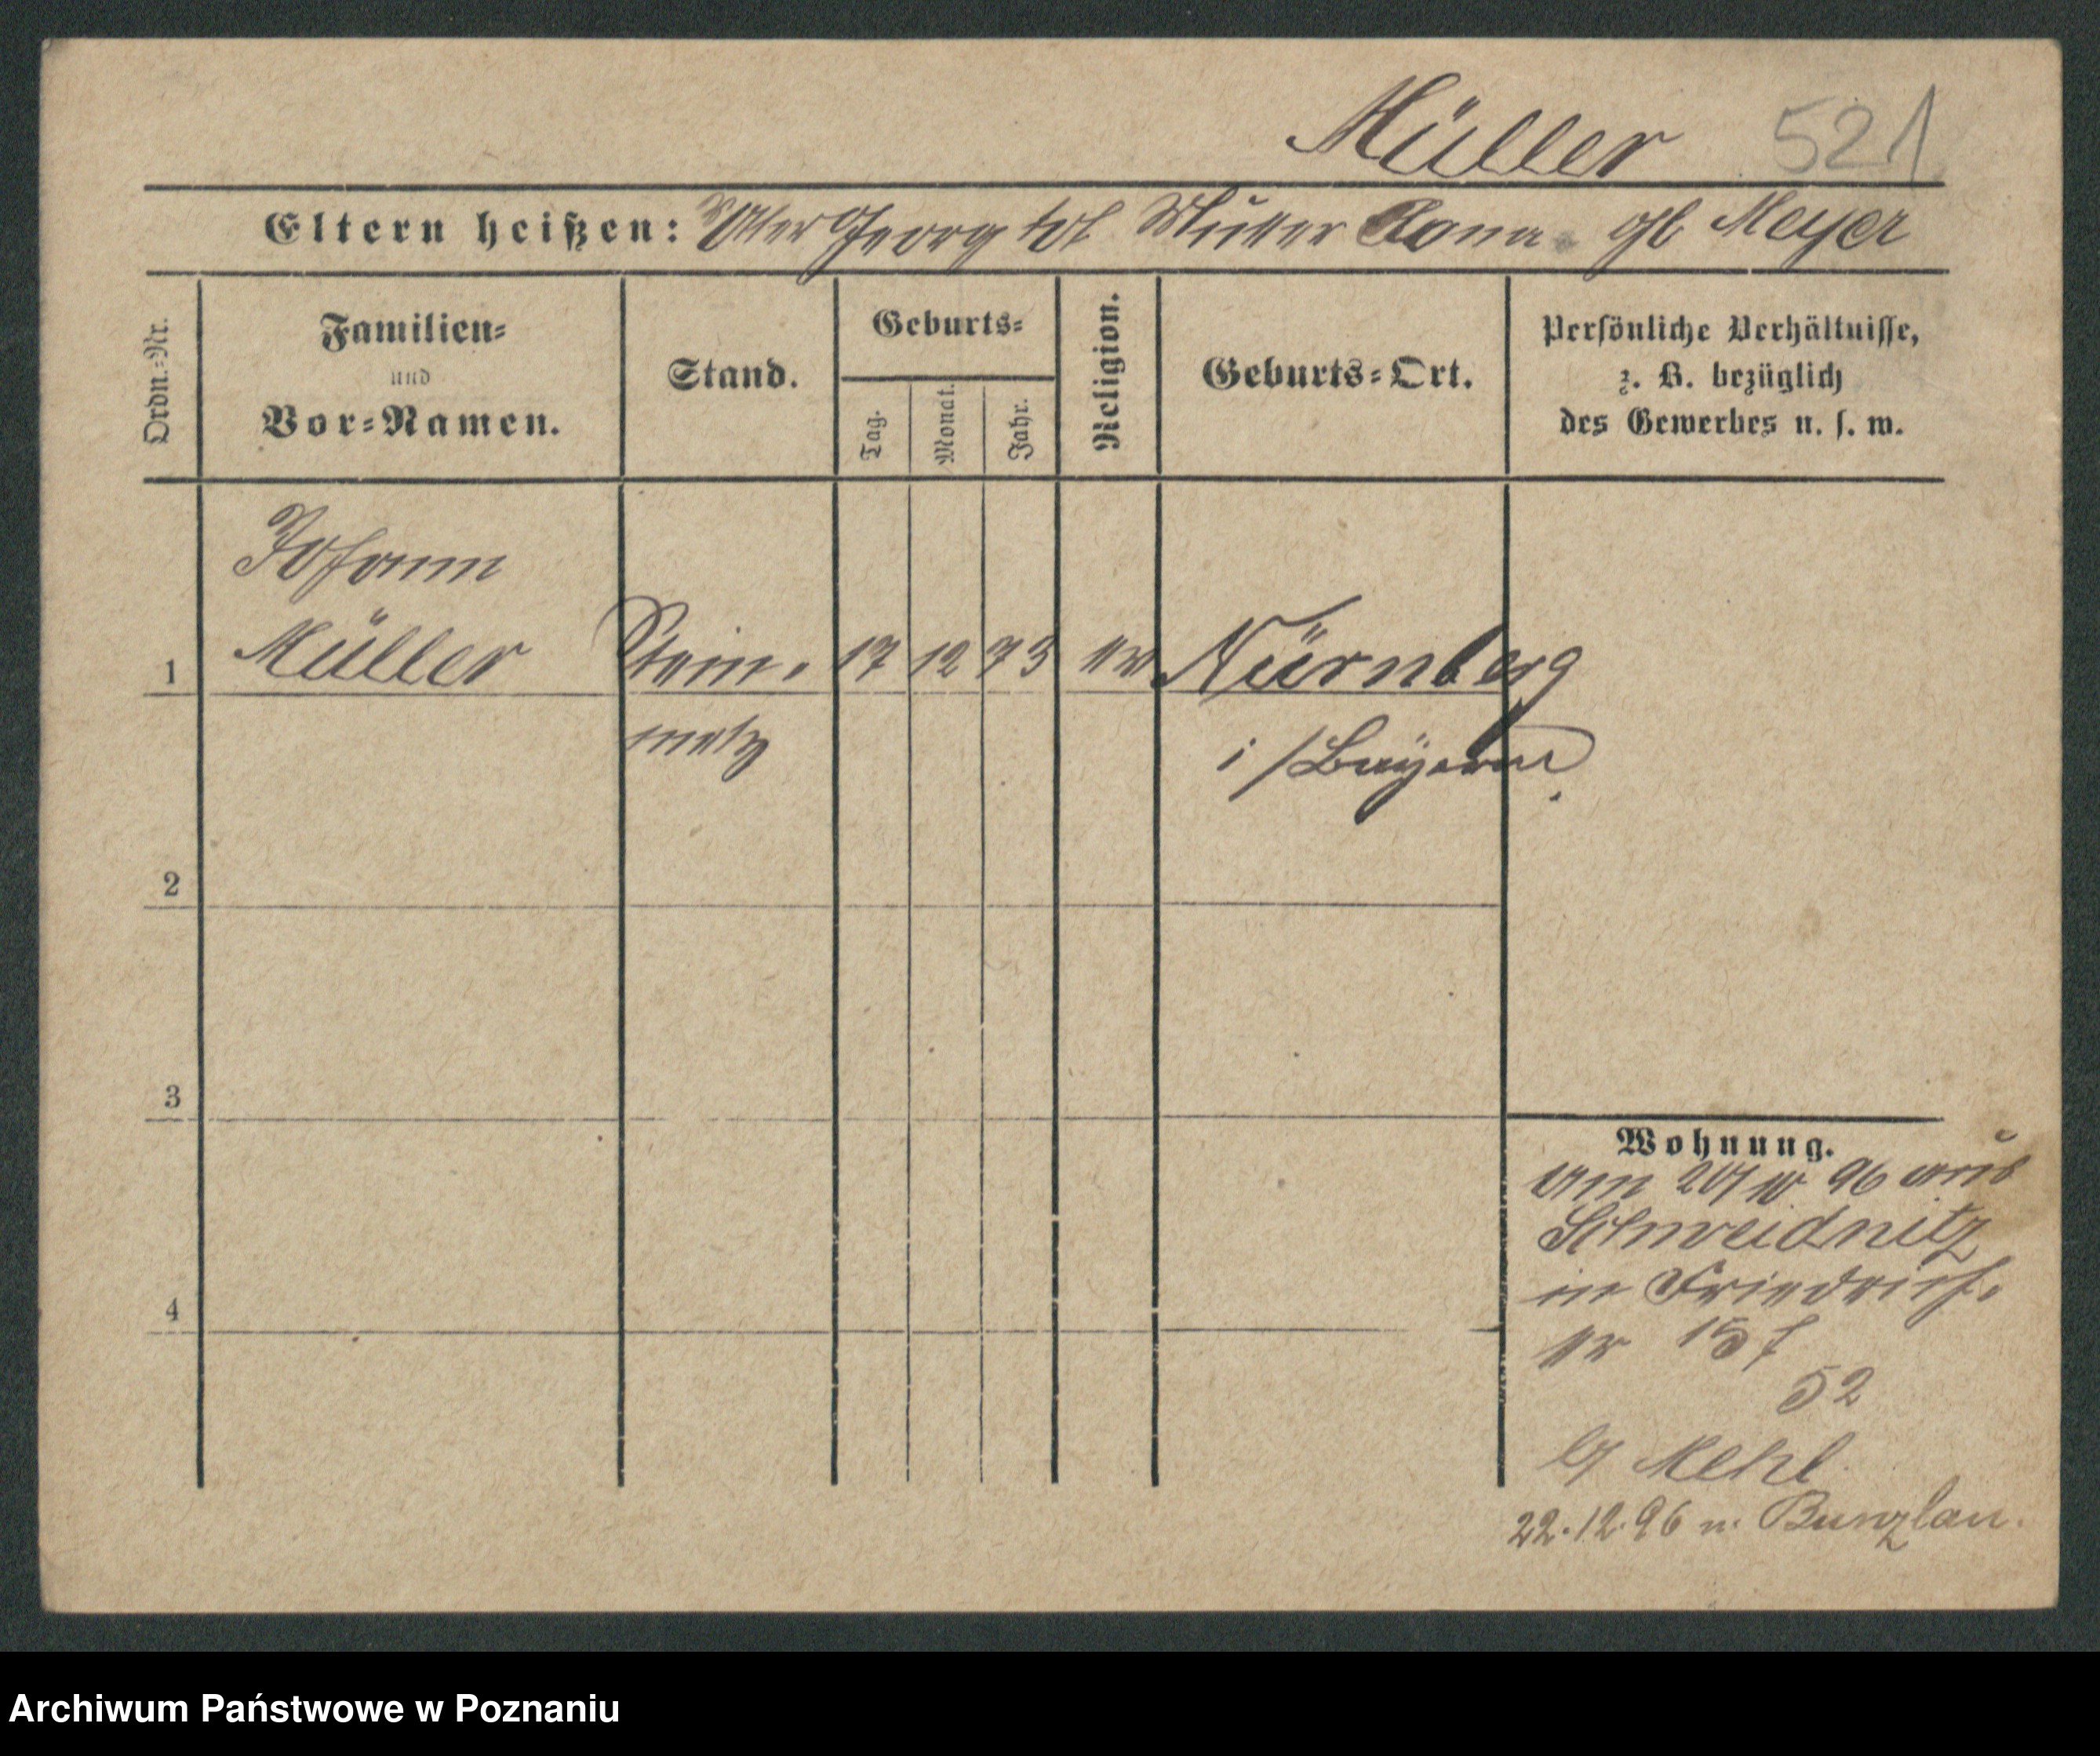 Müller 521
Eltern heißen: Vater Georg tot Mutter gb Meyer
Ordn.-Nr.
Familien-
und
Vor-Namen.
Stand.
Geburts-
Tag.
Monat.
Jahr.
Religion.
Geburts-Ort.
Persönliche Verhältnisse,
z. B. bezüglich
des Gewerbes u. s. w.
Johann
1 Müller Stein- 17 12 73 ev Nürnberg
metz i/Bayern
2
3
4
Wohnung.
am 96 aus
Schweidnitz
in Friedrich-
52
b/ Mehl
22.12.96 n. Bunzlau.
Archiwum Państwowe w Poznaniu